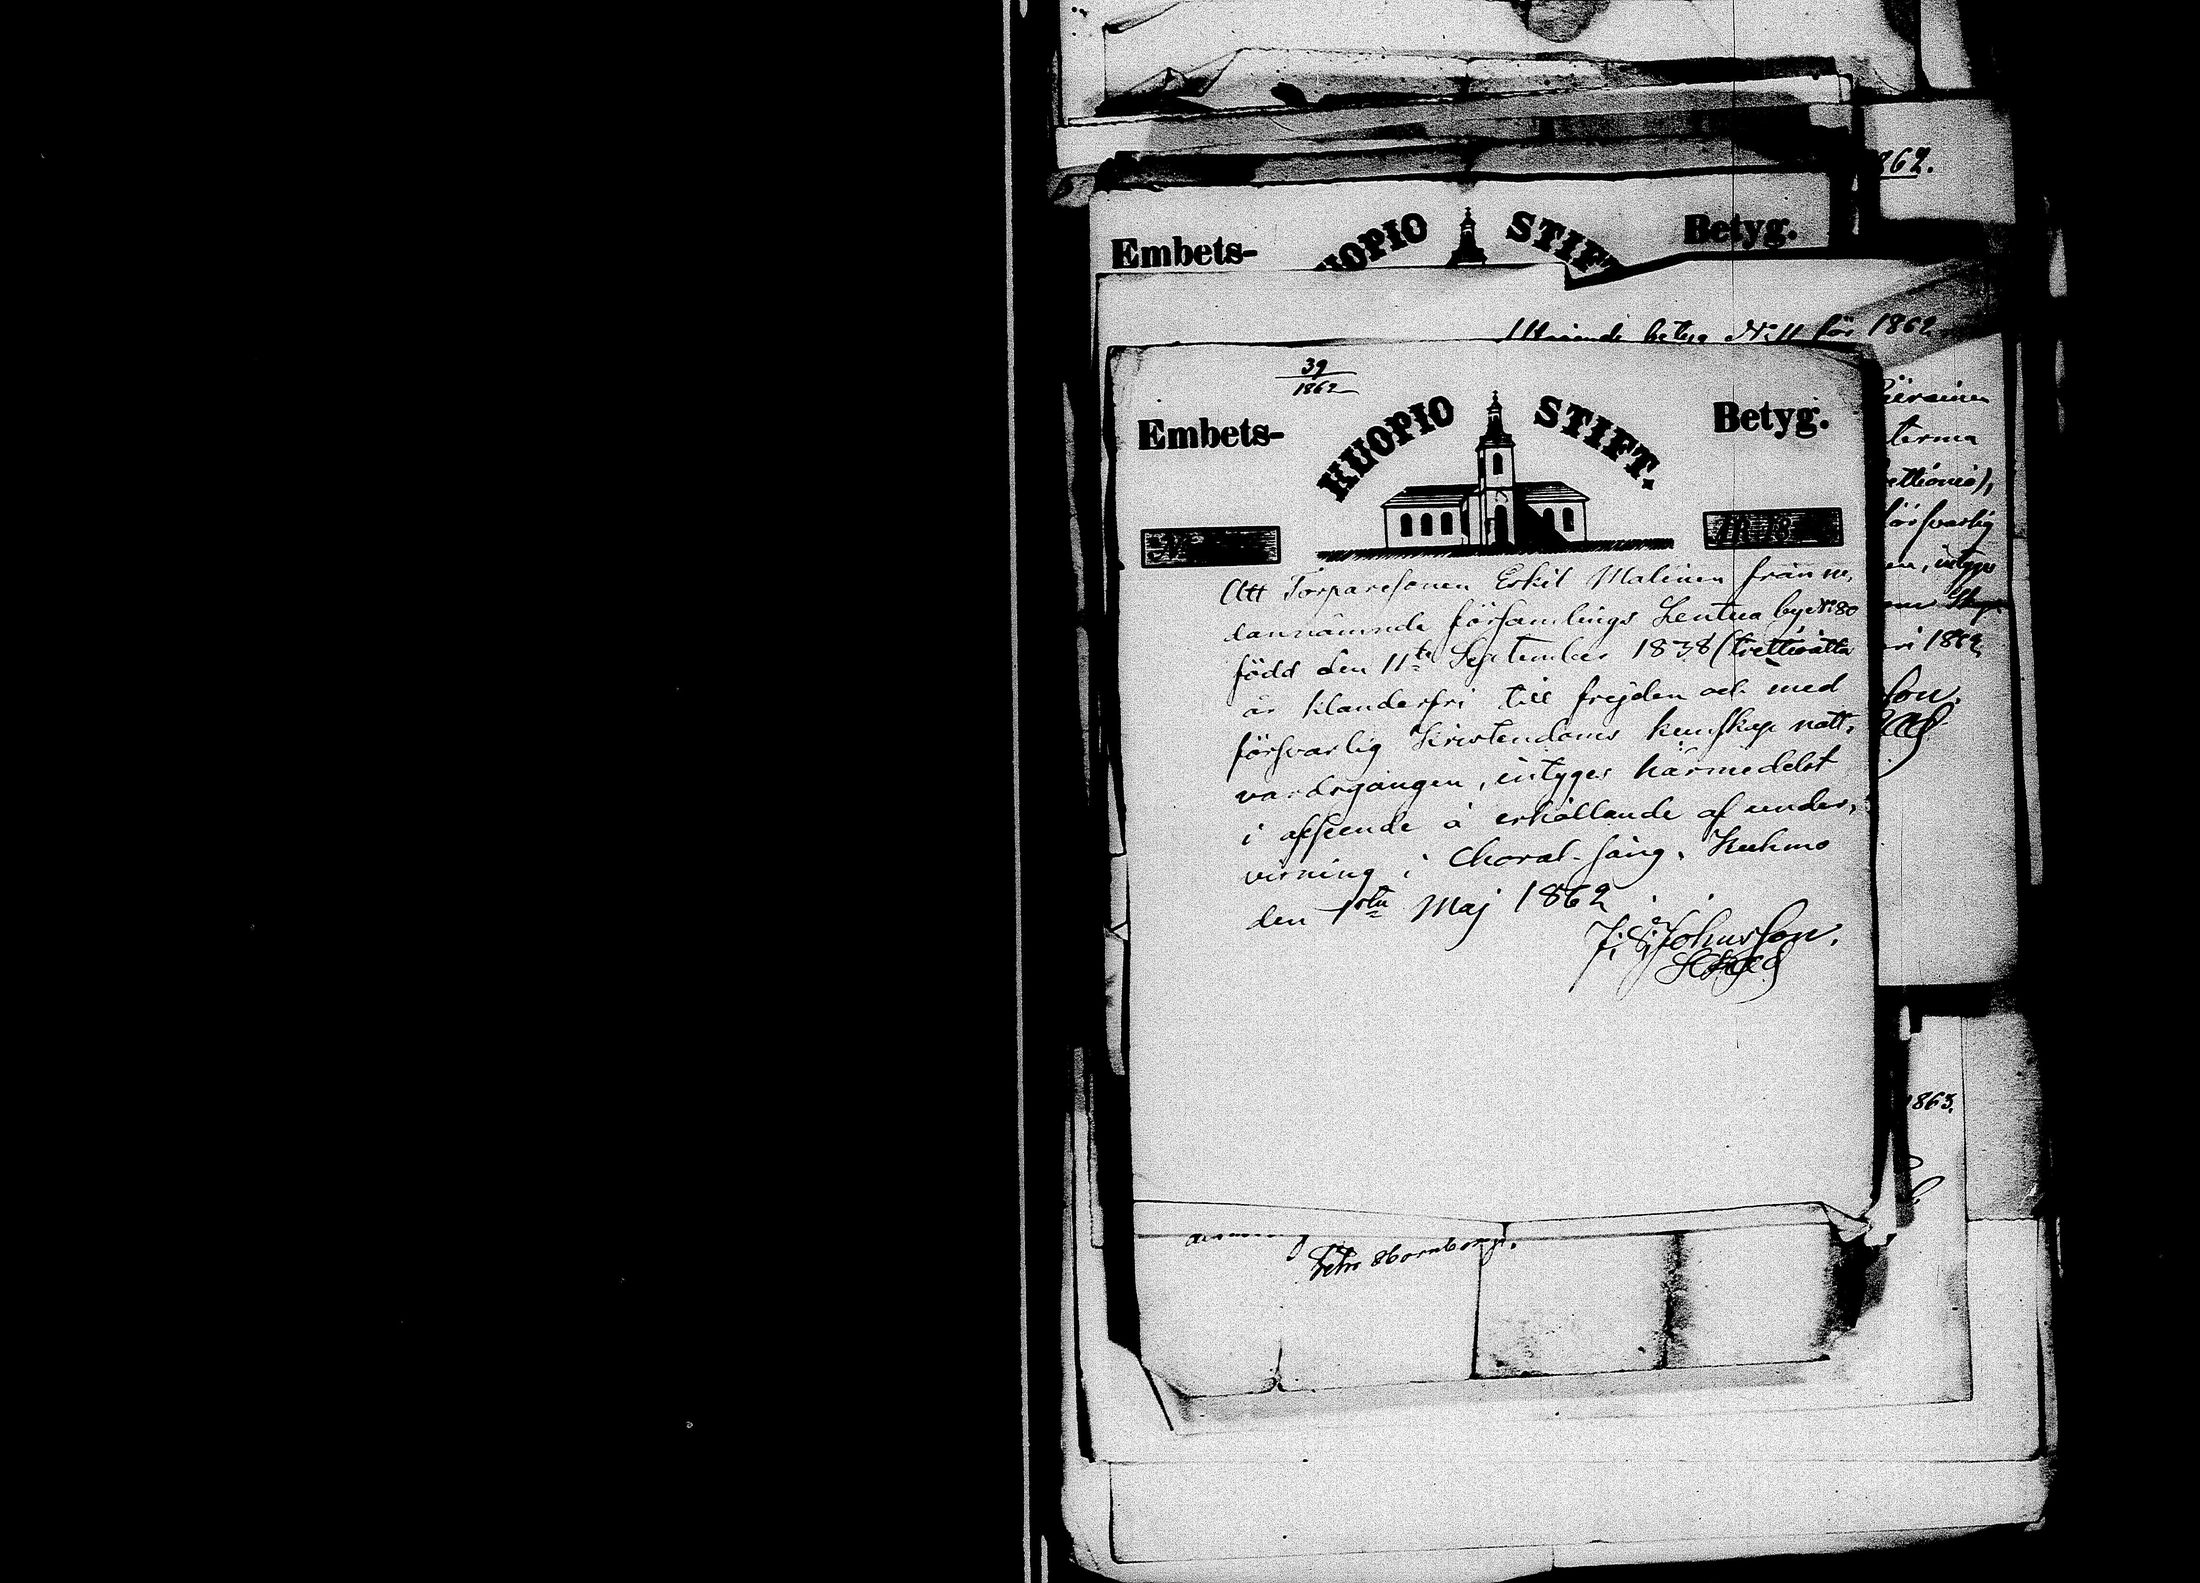 262.
Embets- KUOPIO STIFT Betyg.
betyg N:11 för 1862
39
1862
Embets- KUOPIO STIFT. Betyg.
Att Torparesonen Eskil Malinen från ne,
dannämnde församlings Lentua by N:80
född den 11te September 1838 (trettioåtta
är klanderfri till frejden och med
försvarlig Kristendoms kunskap natt,
vardsgången, intygar härmedelst
i afseende å erhållande af under,
visning i Choral-sång. Kuhmo
den 1sta Maj 1862
J. E. Johnsson.
terma
försvarlig
en, intygar
ri 1862
son.
1863.
Petr. Hornborg.